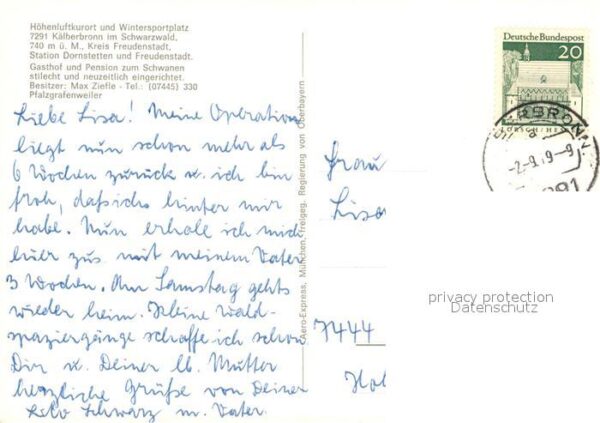 Höhenluftkurort und Wintersportplatz
7291 Kälberbronn im Schwarzwald,
740 m ü. M., Kreis Freudenstadt,
Station Dornstetten und Freudenstadt.
Gasthof und Pension zum Schwanen
stilecht und neuzeitlich eingerichtet.
Besitzer: Max Ziefle - Tel.: (07445) 330
Pfalzgrafenweiler
Liebe Lisa! Meine Operation
liegt nun schon mehr als
6 Wochen zurück u. ich bin
froh, daß ichs hinter mir
habe. Nun erhole ich mich
hier zus. mit meinem Vater
3 Wochen. Am Samstag gehts
wieder heim. Kleine Wald-
spaziergänge schaffe ich schon
Dir u. Deiner lb. Mutter
herzliche Grüße von Deiner
Schwarz m. Vater.
Aero-Express, München, freigeg. Regierung von Oberbayern
Deutsche Bundespost
20
LORSCH/HESSEN
Frau
Lisa
7444
privacy protection
Datenschutz